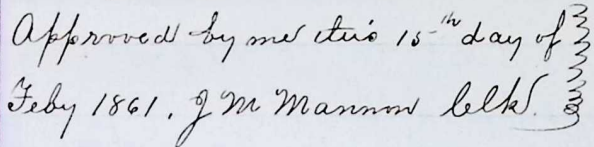 Approved by me this 15th day of
Feby 1861. J M Mannon Clk.